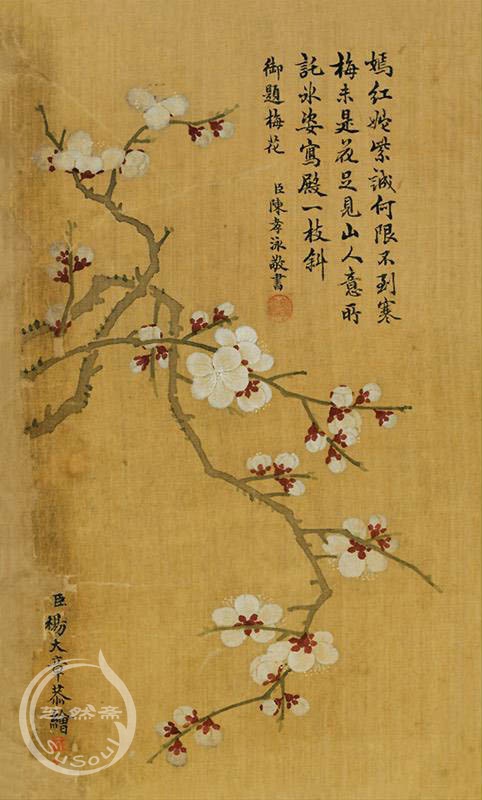 嫣红姹紫誠何限不到寒
梅未是花足見山人意所
託冰姿寫殿一枝斜
御題梅花
臣陳孝泳敬書
臣楊大章恭繪
SuSoul